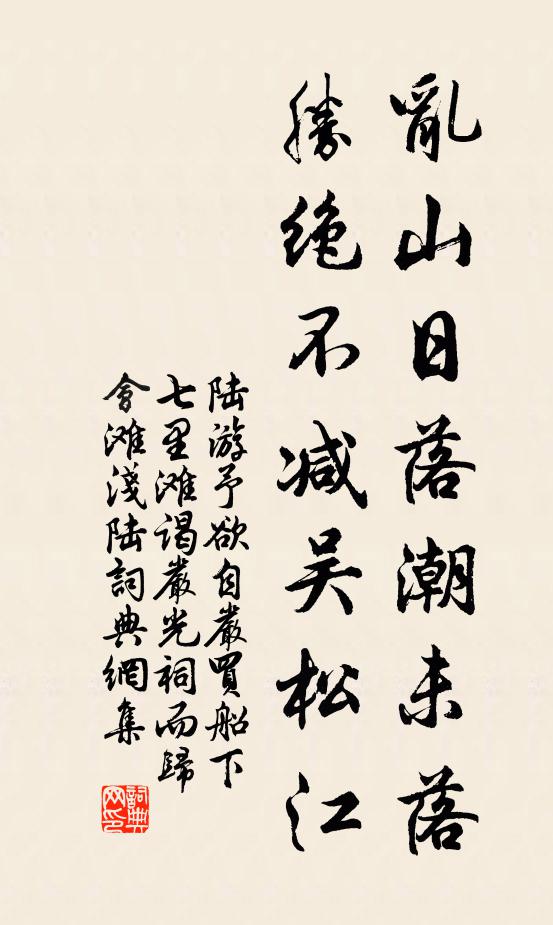 亂山日落潮未落
勝絶不减吴松江
陆游予欲自嚴買船下
七里滩谒嚴光祠而歸
會滩淺陆詞典網集
詞典网印